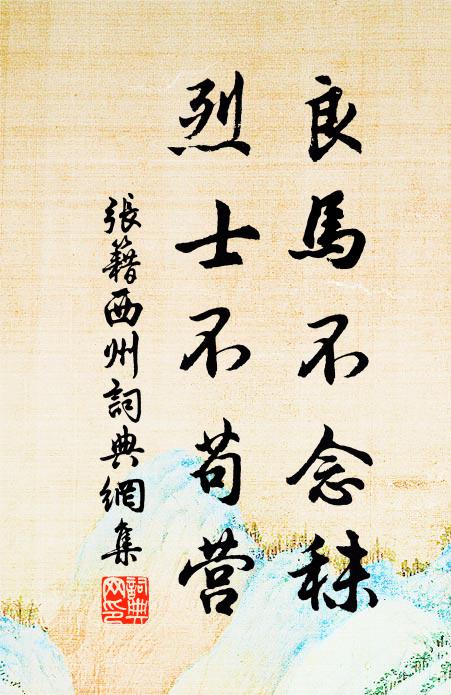 良馬不念秣
烈士不苟营
張籍西州詞典網集
詞典网印